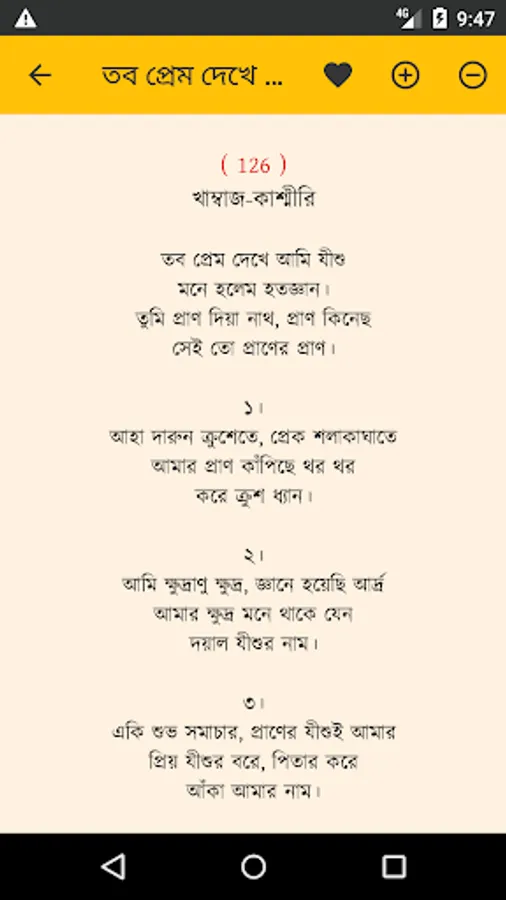 4G 9:47
তব প্রেম দেখে ...
( 126 )
খাম্বাজ-কাশ্মীরি
তব প্রেম দেখে আমি যীশু
মনে হলেম হতজ্ঞান।
তুমি প্রাণ দিয়া নাথ, প্রাণ কিনেছ
সেই তো প্রাণের প্রাণ।
১।
আহা দারুন ক্রুশেতে, প্রেক শলাকাঘাতে
আমার প্রাণ কাঁপিছে থর থর
করে ক্রুশ ধ্যান।
২।
আমি ক্ষুদ্রাণু ক্ষুদ্র, জ্ঞানে হয়েছি আর্দ্র
আমার ক্ষুদ্র মনে থাকে যেন
দয়াল যীশুর নাম।
৩।
একি শুভ সমাচার, প্রাণের যীশুই আমার
প্রিয় যীশুর বরে, পিতার করে
আঁকা আমার নাম।